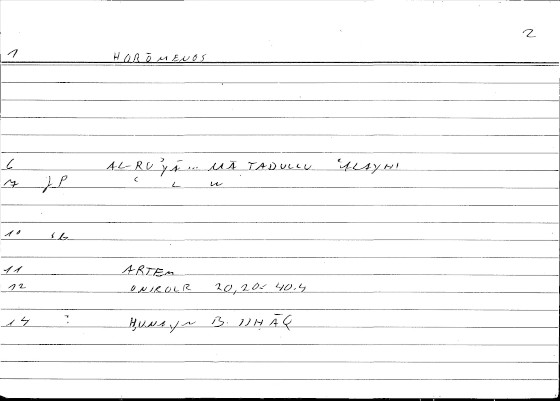 2
1 HORŌMENOS
6 AL-RUʾYĀ... MĀ TADULLU ʿALAYHI
17 ʿ L W
10
11 ARTEM
12 ONIROCR 20,20 = 40.4
14 : ḤUNAYN B. ISḤĀQ